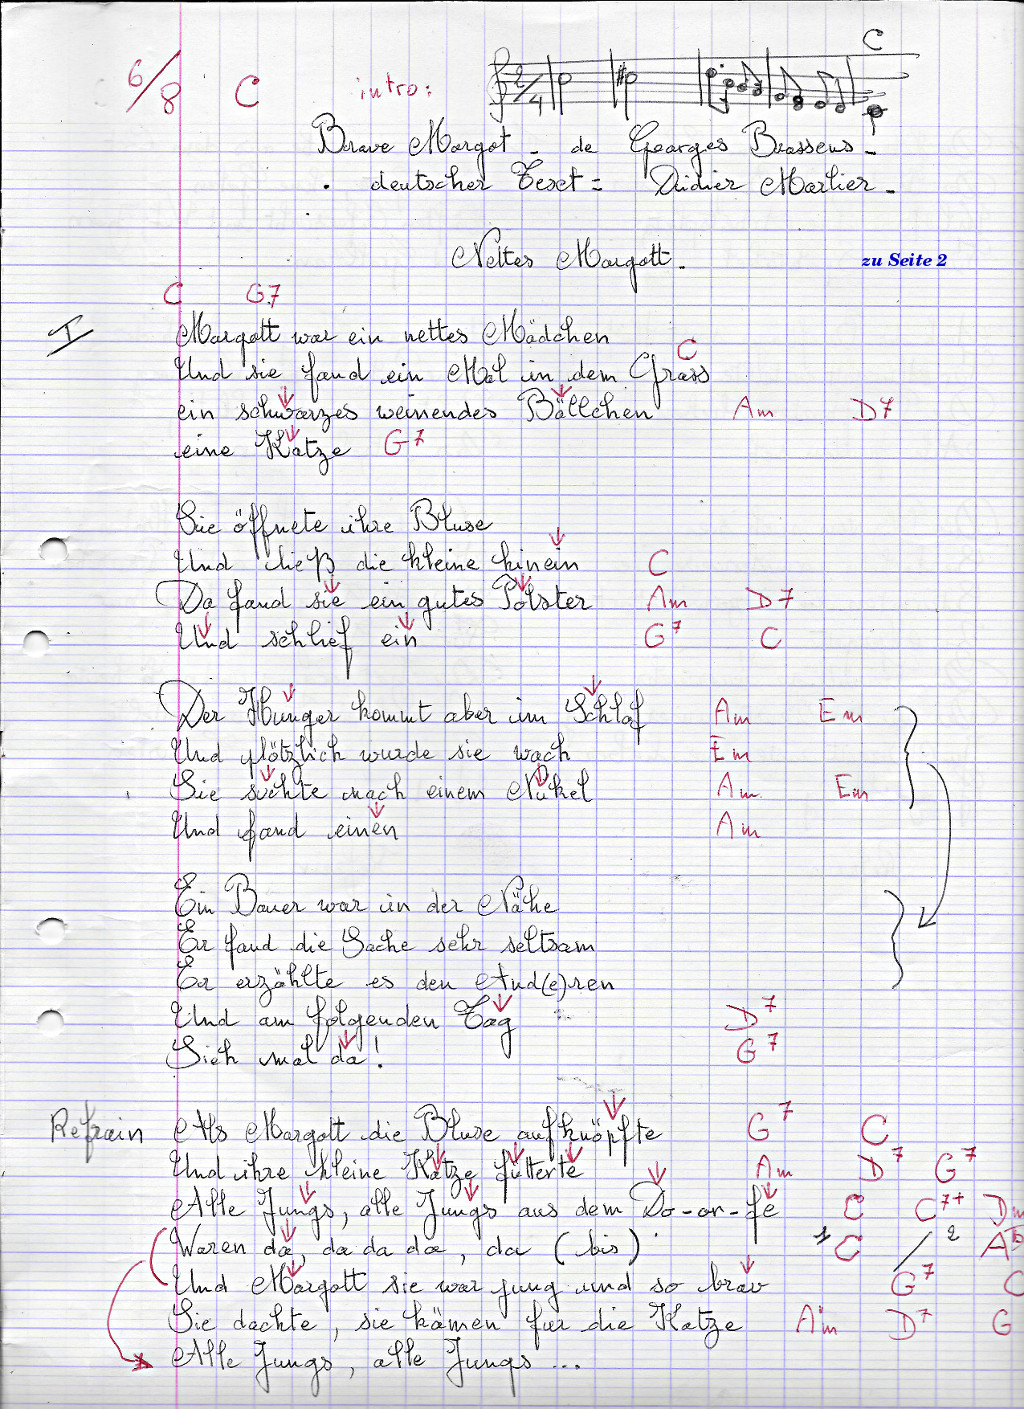 C
6/8 C intro: 2/4
Brave Margot - de Georges Brassens -
. deutscher Text = Didier Marlier -
Nettes Margott.
zu Seite 2
C G7
I Margott war ein nettes Mädchen
Und sie fand ein Mal in dem Grass C
ein schwarzes weinendes Bällchen Am D7
eine Katze G7
Sie öffnete ihre Bluse
Und ließ die kleine hinein C
Da fand sie ein gutes Polster Am D7
Und schlief ein G7 C
Der Hunger kommt aber im Schlaf Am Em
Und plötzlich wurde sie wach Em
Sie suchte nach einem Nukel Am Em
Und fand einen Am
Ein Bauer war in der Nähe
Er fand die Sache sehr seltsam
Er erzählte es den And(e)ren
Und am folgenden Tag D7
Sieh mal da! G7
Refrain Als Margott die Bluse aufknöpfte G7 C
Und ihre kleine Katze fütterte Am D7 G7
Alle Jungs, alle Jungs aus dem Do-or-fe C C7+ Dm
Waren da, da da da, da (bis) 1 C / 2
Und Margott sie war jung und so brav G7 C
Sie dachte, sie kämen für die Katze Am D7 G
Alle Jungs, alle Jungs ...